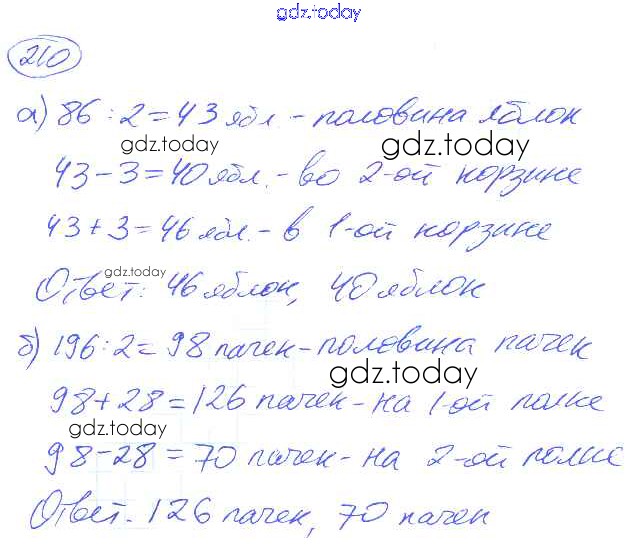 gdz.today
210
а) 86 : 2 = 43 ябл - половина яблок
gdz.today
gdz.today
43 - 3 = 40 ябл. - во 2-ой корзине
43 + 3 = 46 ябл. - в 1-ой корзине
gdz.today
Ответ: 46 яблок, 40 яблок
б) 196 : 2 = 98 пачек - половина пачек
gdz.today
98 + 28 = 126 пачек - на 1-ой полке
gdz.today
98 - 28 = 70 пачек - на 2-ой полке
Ответ. 126 пачек, 70 пачек